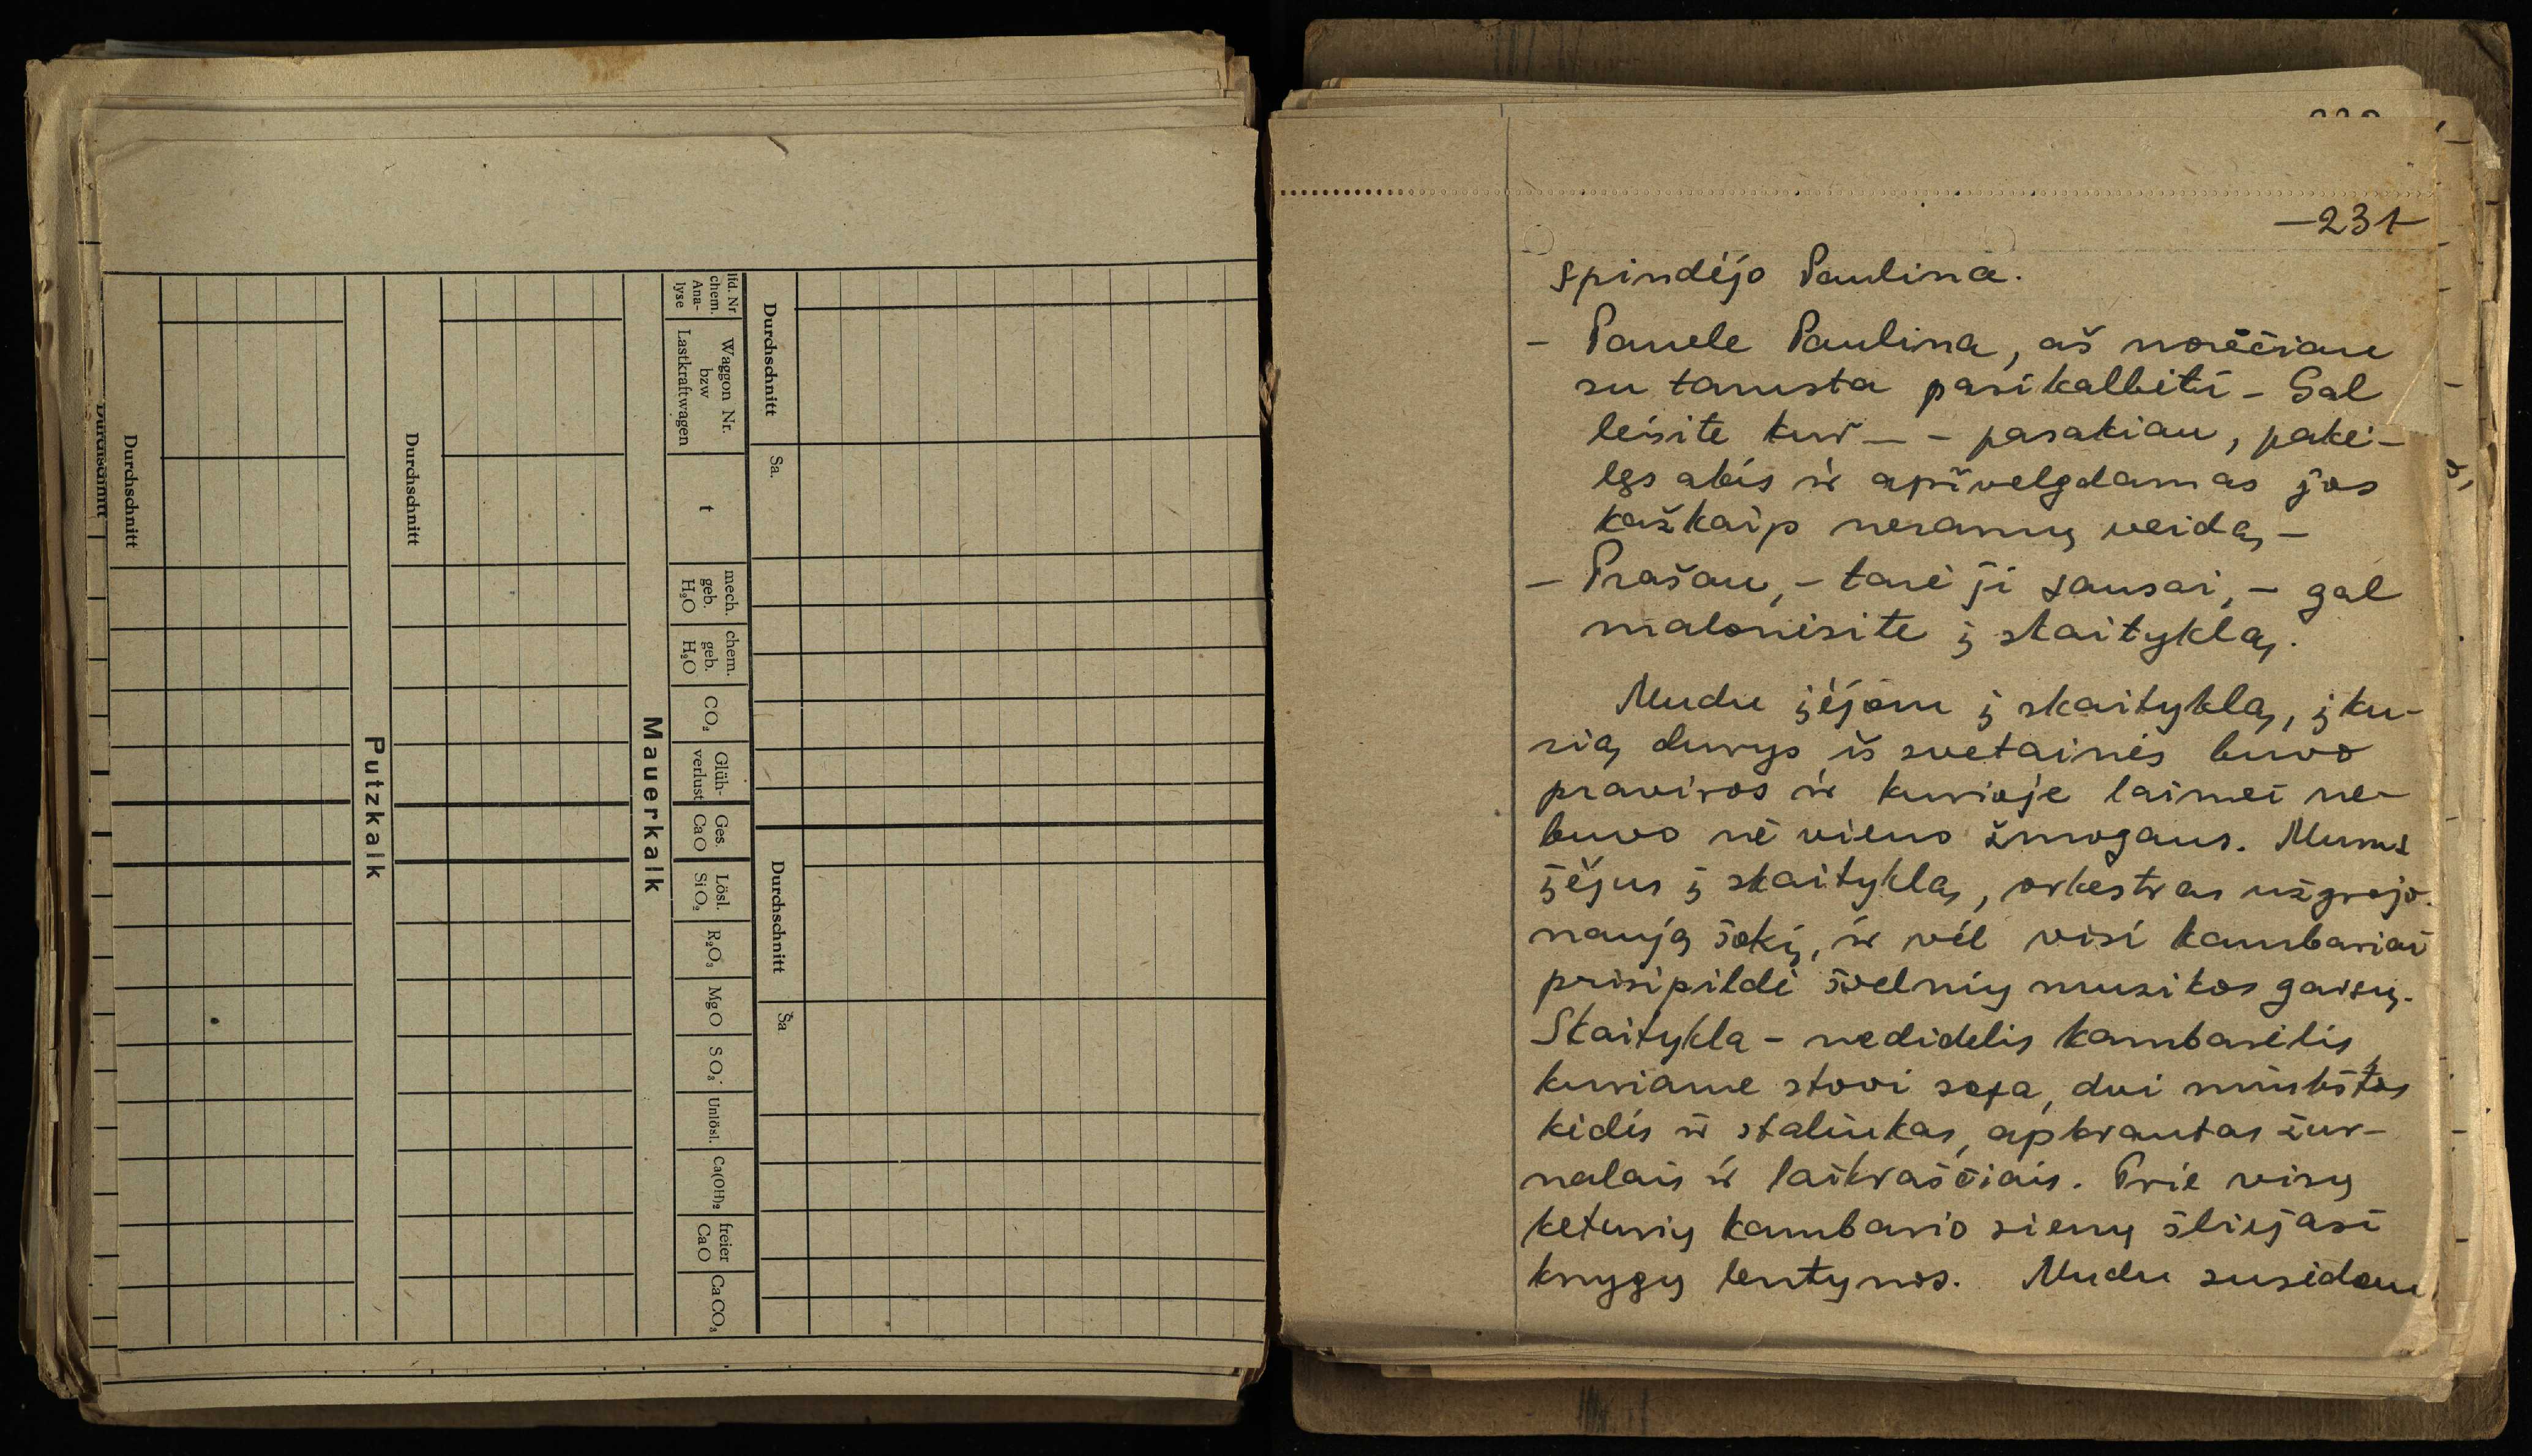 Durchschnitt
Durchschnitt
Putzkalk
Durchschnitt
Mauerkalk
lfd. Nr
chem.
Ana-
lyse
Waggon Nr.
bzw
Lastkraftwagen
t
mech.
geb.
H₂O
chem.
geb.
H₂O
CO₂
Glüh-
verlust
Ges.
CaO
Lösl.
SiO₂
R₂O₃
MgO
SO₃
Unlösl.
Ca(OH)₂
freier
CaO
CaCO₃
Durchschnitt
Sa.
Durchschnitt
Sa
—231—
spindėjo Paulina.
- Panele Paulina, aš norėčiau
su tamsta pasikalbėti - Gal
leisite kur — - pasakiau, pakė-
lęs akis ir apžvelgdamas jos
kažkaip neramų veidą, -
- Prašau, - tarė ji sausai, - gal
malonėsite į skaityklą.
Mudu įėjom į skaityklą, į ku-
rią durys iš svetainės buvo
praviros ir kurioje laimei ne-
buvo nė vieno žmogaus. Mums
įėjus į skaityklą, orkestras užgrojo
naują šokį, ir vėl visi kambariai
prisipildė švelnių muzikos garsų.
Skaitykla - nedidelis kambarėlis,
kuriame stovi sofa, dvi minkštos
kėdės ir staliukas, apkrautas žur-
nalais ir laikraščiais. Prie visų
keturių kambario sienų šliejasi
knygų lentynos. Mudu susėdom